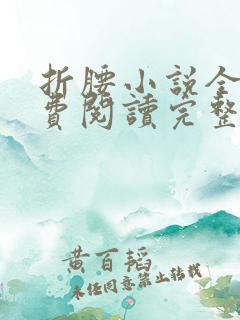 折腰小說全
費閱讀完整
黃百韜
未任同意禁止轉載